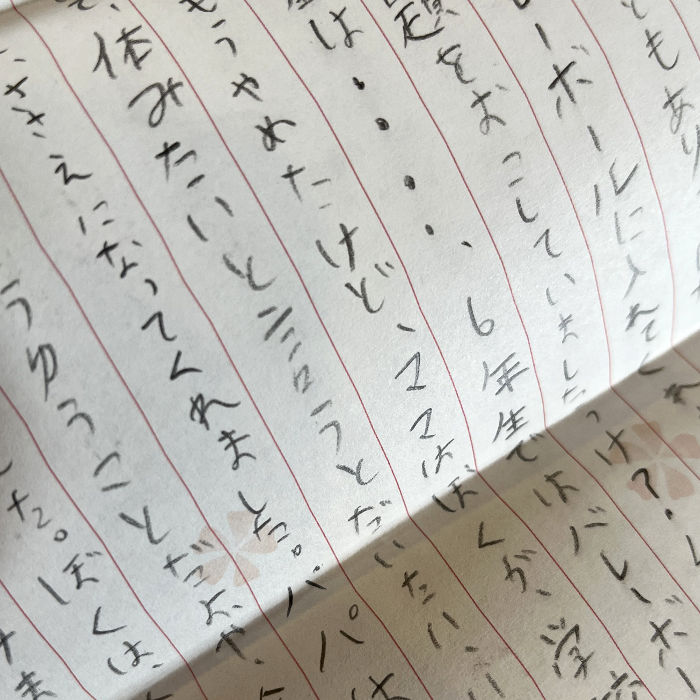 ともあり
レーボールに入れてくれ
題をおこしていましたっけ?
は・・・・、6年生ではバレーボ
もうやめたけど、ママはぼくが、学
休みたいと言うとだいたい、
ささえになってくれました。パパは
うゆうことだよ、や、
した。ぼくは、
ま